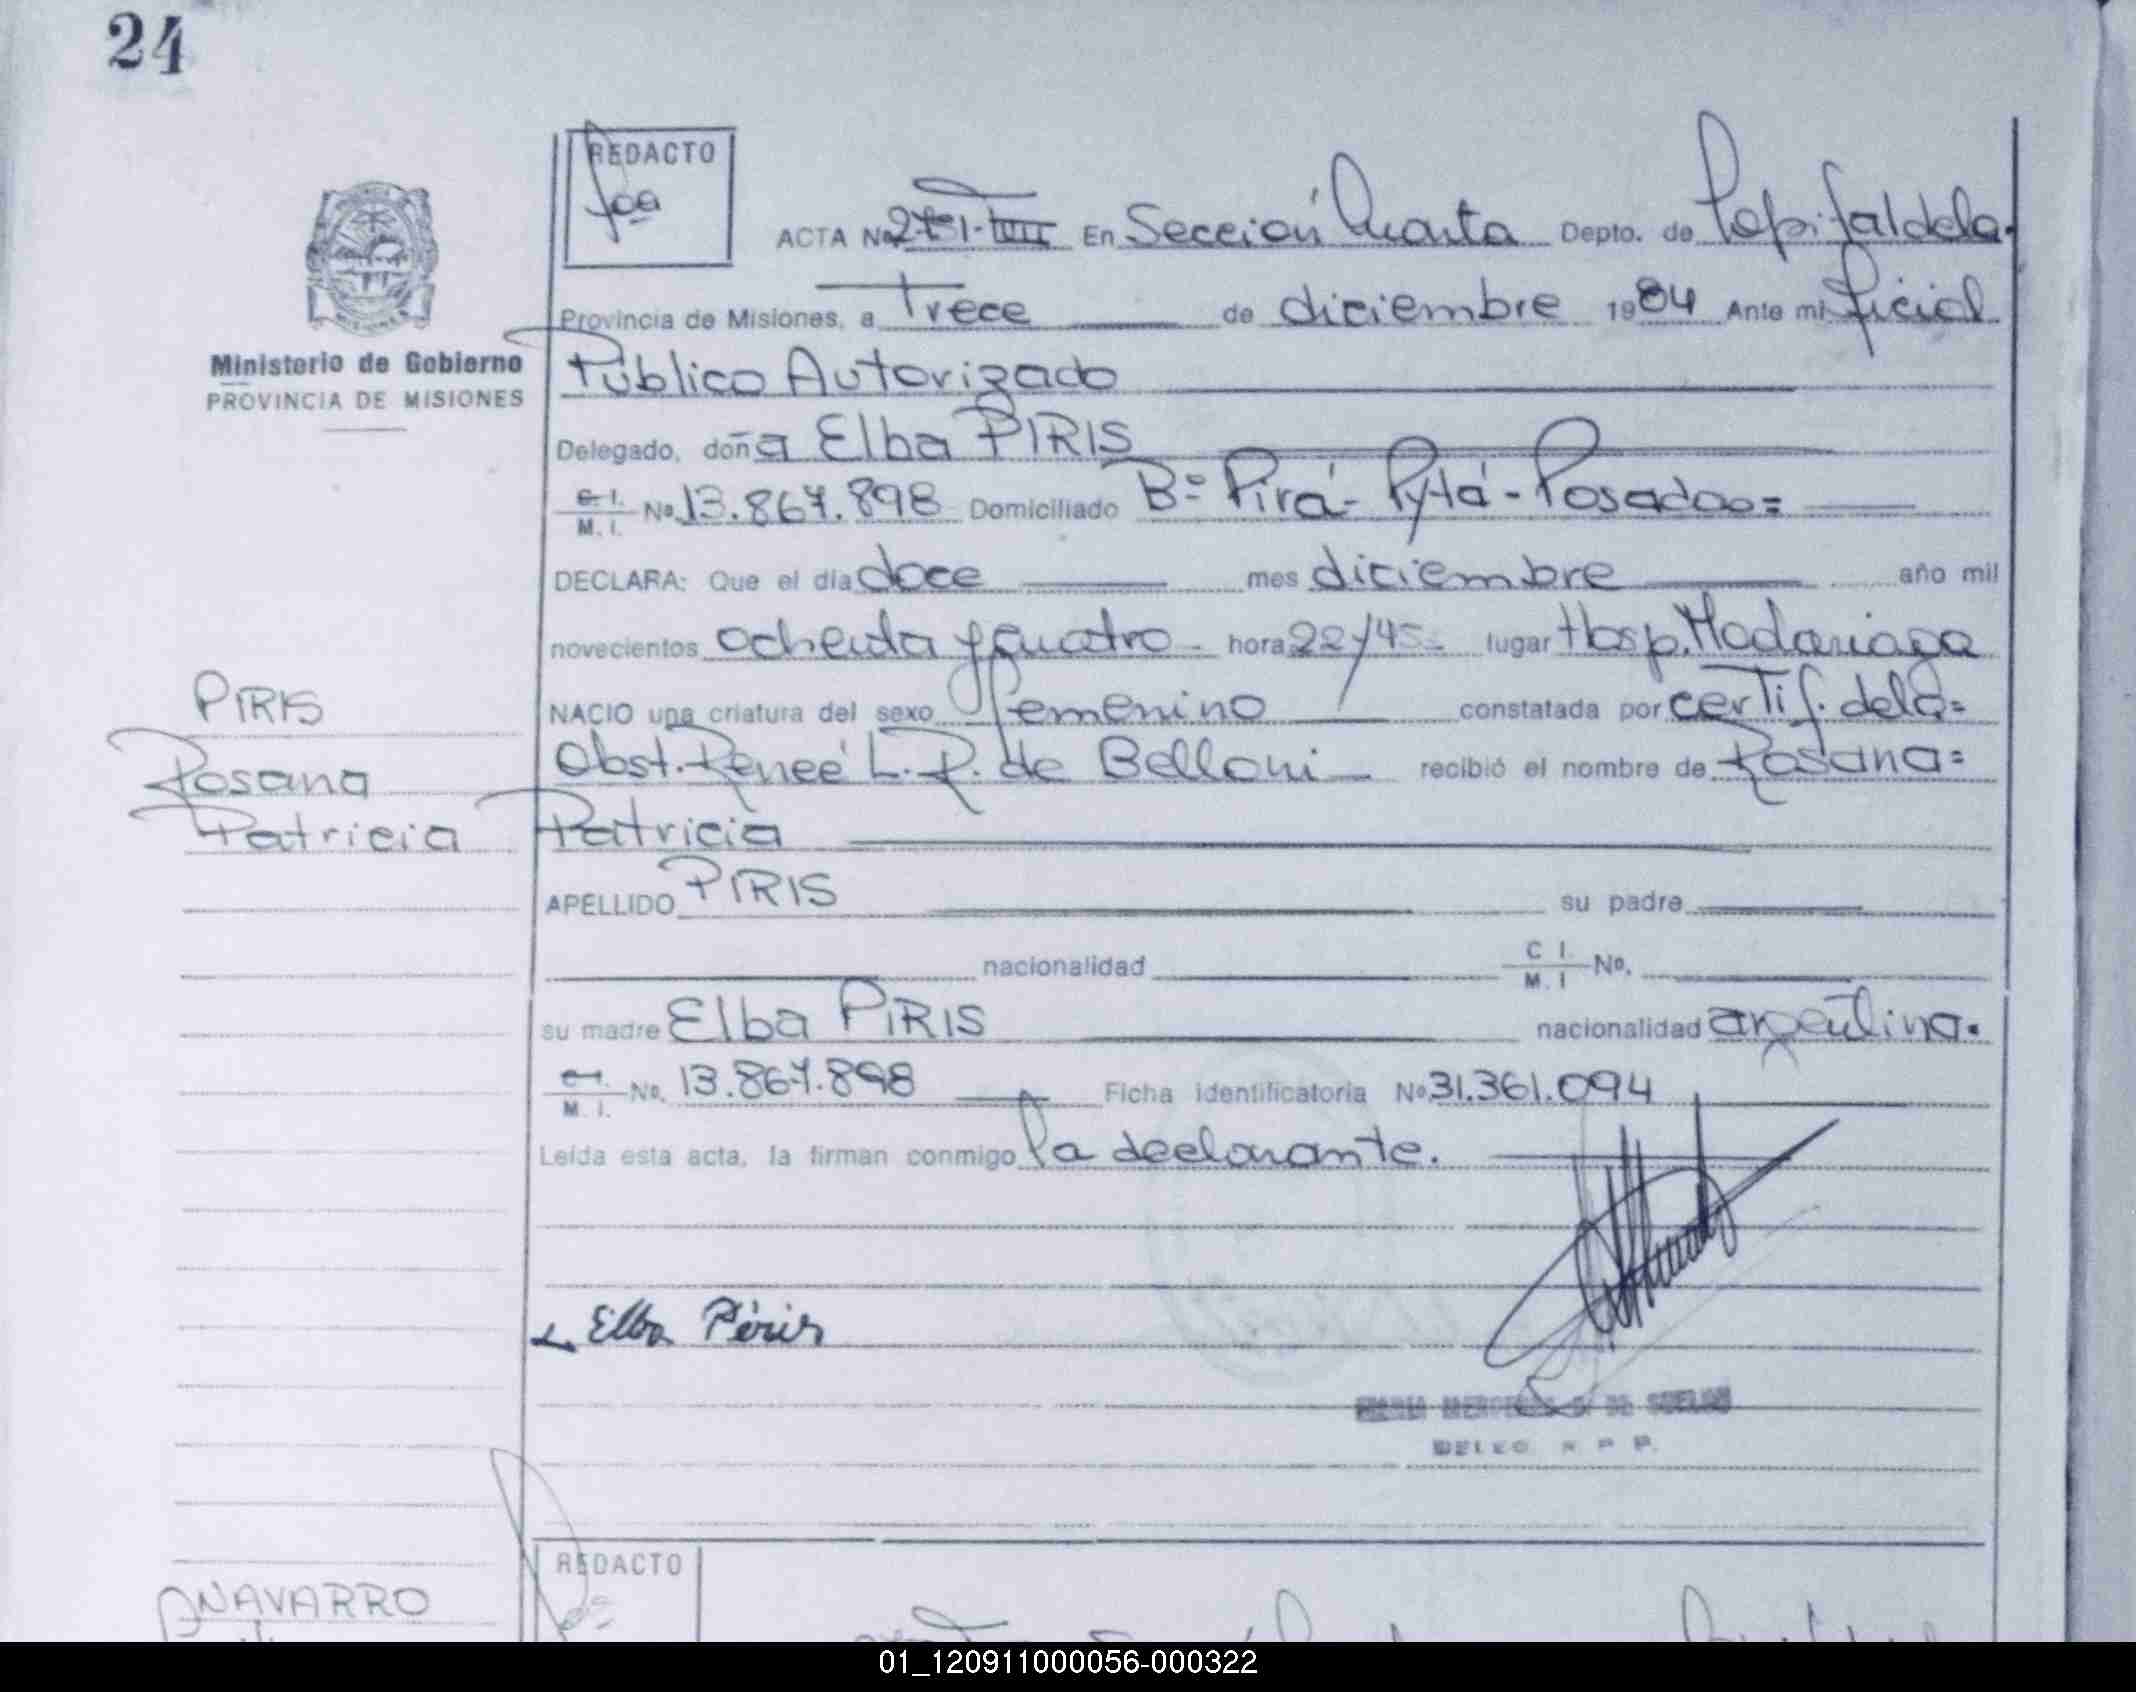 24
REDACTO
ACTA No 2751-TIII En Sección Cuarta Depto. de Capital de la
Provincia de Misiones, a Trece de diciembre 1984 Ante mi Oficial
Ministerio de Gobierno
PROVINCIA DE MISIONES
Público Autorizado
Delegado, doña Elba PIRIS
C. I. M. I. No. 13.867.898 Domiciliado Bº Pirá-Pytá-Posadas=
DECLARA: Que el día doce mes diciembre año mil
novecientos ochenta y cuatro hora 22/45= lugar Hosp. Madariaga
PIRIS
NACIO una criatura del sexo femenino constatada por certif. de la=
Rosana
Obst. Reneé L. R. de Belloni recibió el nombre de Rosana=
Patricia
Patricia
APELLIDO PIRIS su padre
nacionalidad C I. M. I No.
su madre Elba PIRIS nacionalidad argentina.
M. I. No. 13.867.898 Ficha identificatoria No 31.361.094
Leída esta acta, la firman conmigo la declarante.
Elba Piris
MARIA MERCEDES DE
DELEG. R P P.
REDACTO
NAVARRO
01_120911000056-000322